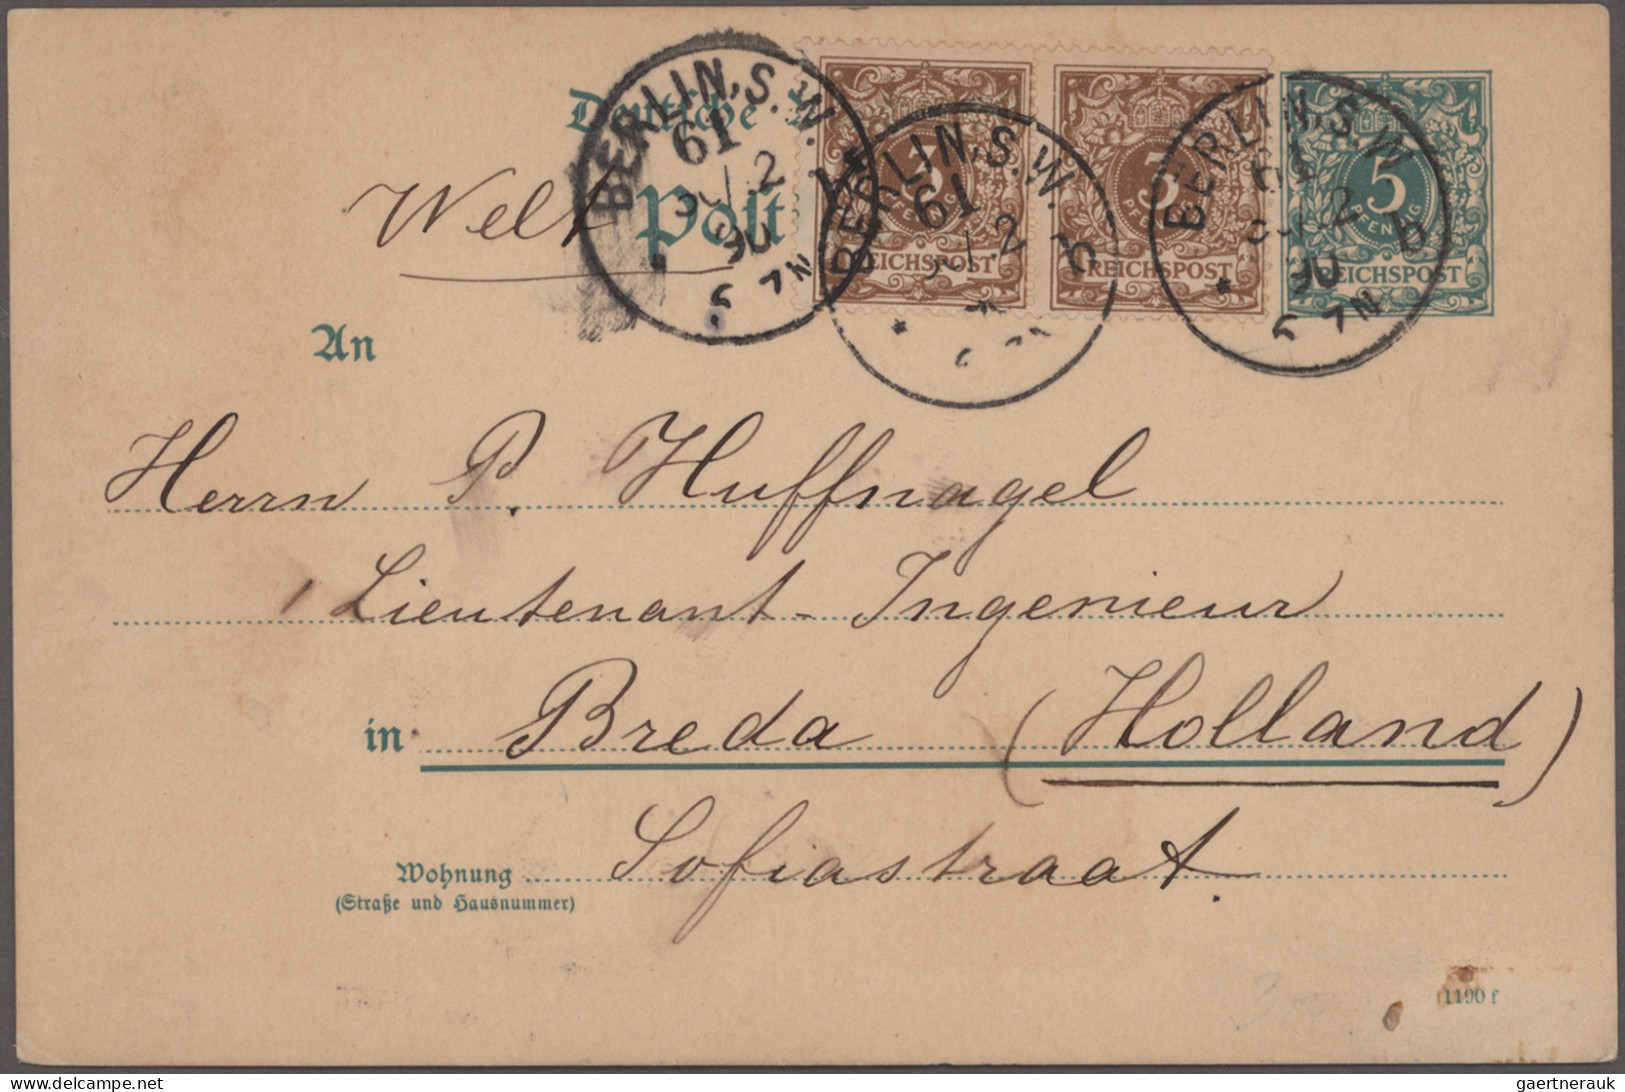 Deutsche
Welt Post
BERLIN, S.W.
61
30/12
90
6-7N
BERLIN, S.W.
61
b
BERLIN, S.W.
61
30/12
90
6-7N
b
3
PFENNIG
REICHSPOST
3
PFENNIG
REICHSPOST
5
PFENNIG
REICHSPOST
An
Herrn P. Huffnagel
Lieutenant-Ingenieur
in Breda (Holland)
Wohnung Sofiastraat.
(Straße und Hausnummer)
1190 f
gaertnerauk
delcampe.net